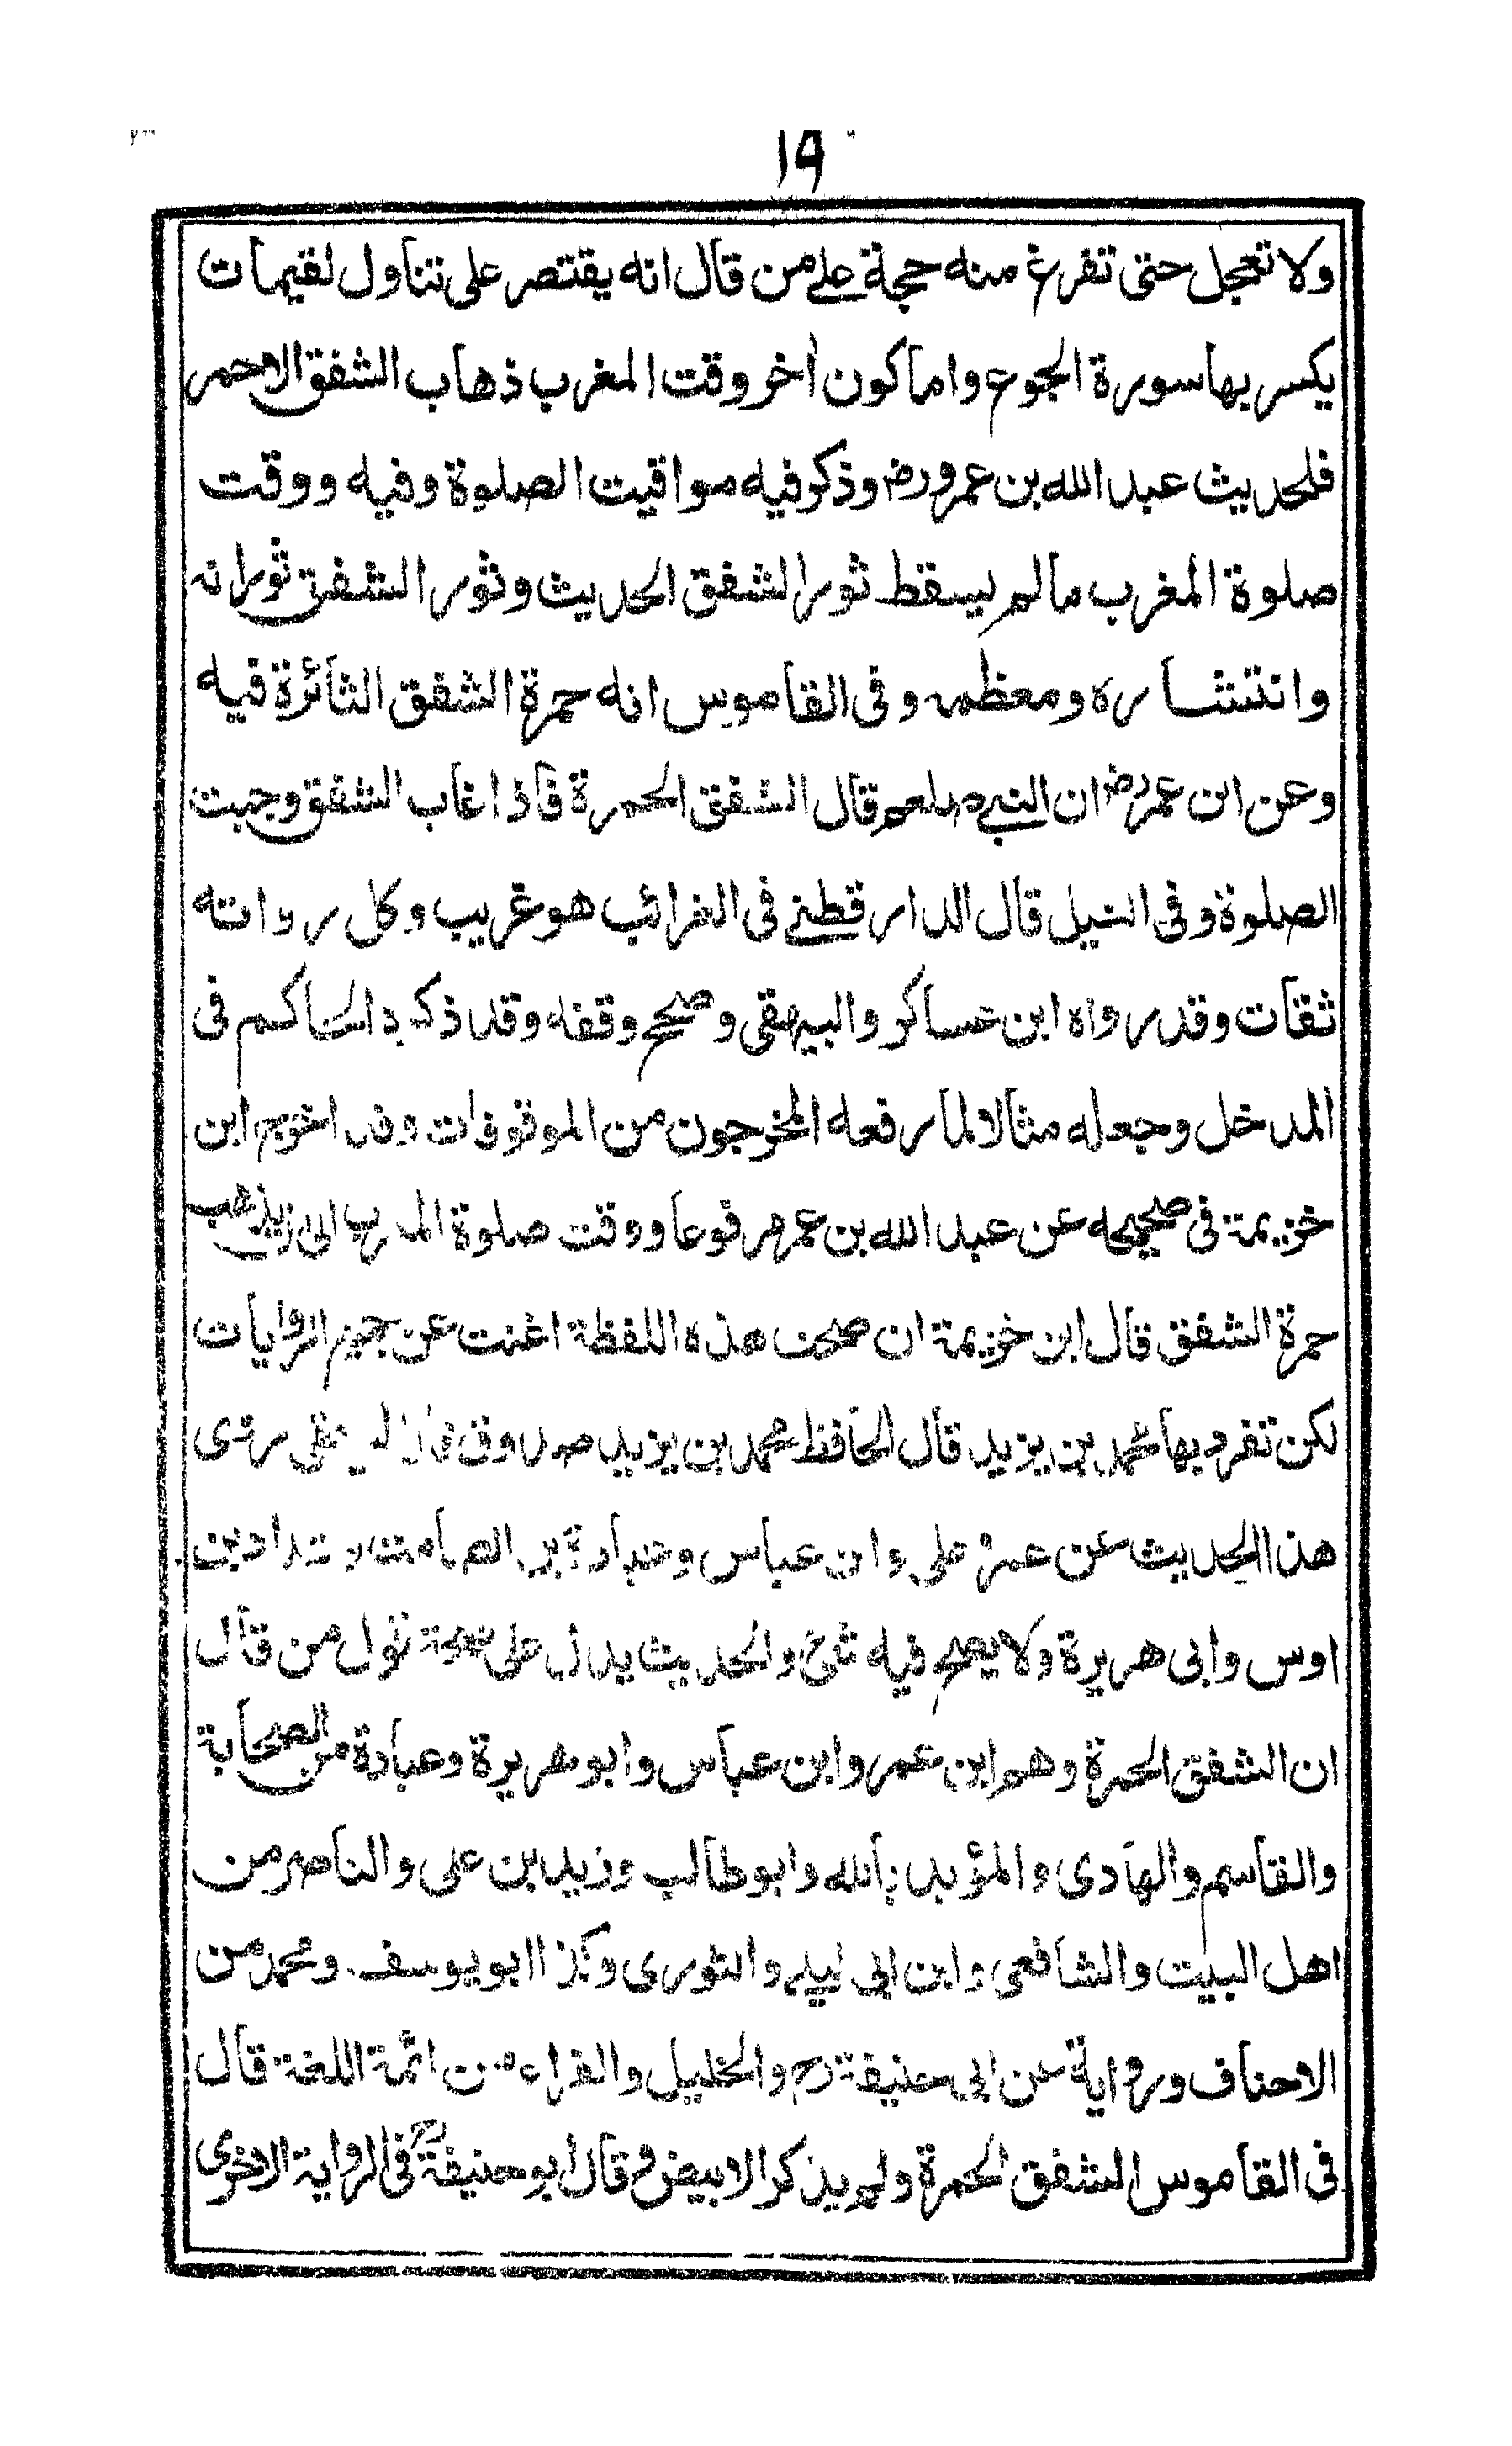 ١٩
ولا تعجل حتى تفرغ منه حجة على من قال انه يقتصر على تناول لقيمات
يكسر بها سورة الجوع واما كون أخر وقت المغرب ذهاب الشفق الاحمر
فلحديث عبد الله بن عمرو رض وذكر فيه مواقيت الصلوة وفيه ووقت
صلوة المغرب مالم يسقط ثور الشفق الحديث وثور الشفق ثورانه
وانتشاره ومعظمه وفى القاموس انه حمرة الشفق الثائرة فيه
وعن ابن عمر رض ان النبى صلعم قال الشفق الحمرة فاذا غاب الشفق وجبت
الصلوة وفى النيل قال الدارقطنى فى الغرائب هو غريب وكل رواته
ثقات وقد رواه ابن عساكر والبيهقى وصحح وقفه وقد ذكره الحاكم فى
المدخل وجعله مثالا لما رفعه المخرجون من الموقوفات وقد اخرج ابن
خزيمة فى صحيحه عن عبد الله بن عمر مرفوعا ووقت صلوة المغرب الى ان يذهب
حمرة الشفق قال ابن خزيمة ان صحت هذه اللفظة اغنت عن جميع الروايات
لكن تفرد بها محمد بن يزيد قال الحافظ محمد بن يزيد صدوق قال البيهقى روى
هذا الحديث عن عمر وعلى وابن عباس وعبادة بن الصامت وشداد بن
اوس وابى هريرة ولا يصح فيه شئ والحديث يدل على صحة قول من قال
ان الشفق الحمرة وهم ابن عمر وابن عباس وابو هريرة وعبادة من الصحابة
والقاسم والهادى والمؤيد بالله وابو طالب وزيد بن على والناصر من
اهل البيت والشافعى وابن ابى ليلى والثورى وكذا ابو يوسف ومحمد من
الاحناف ورواية عن ابى حنيفة رح والخليل والفراء من ائمة اللغة قال
فى القاموس الشفق الحمرة ولم يذكر الابيض وقال أبو حنيفة رح فى الرواية الاخرى